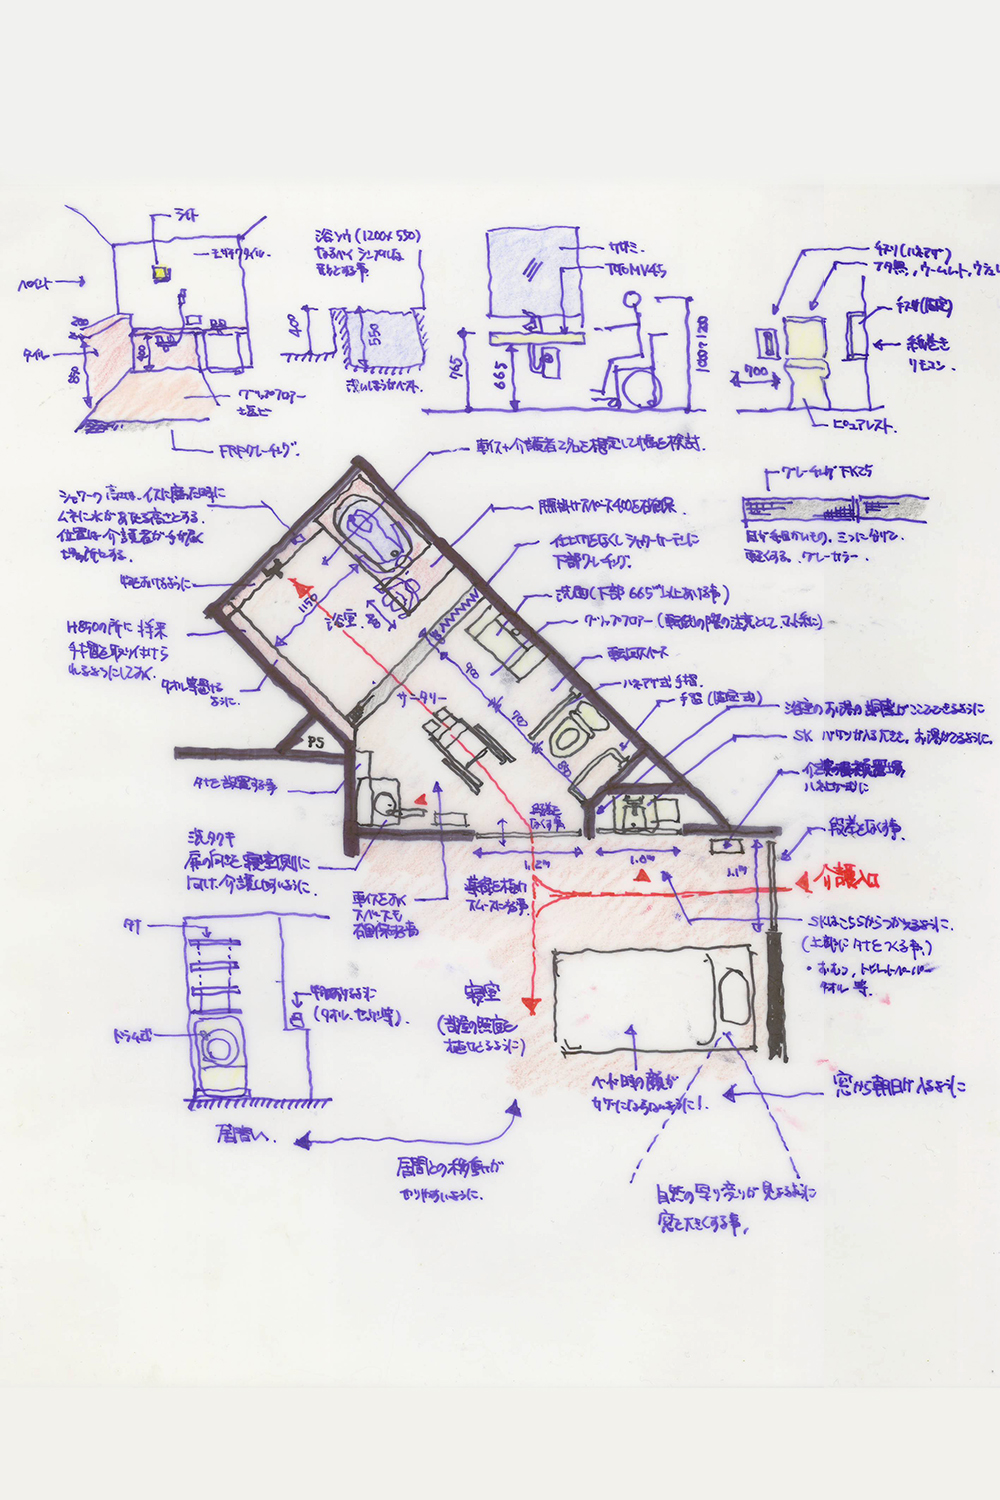 ライト
モザイクタイル
ペイント
タイル
850
400
グリップフロアー
FRPグレーチング
浴ソウ(1200×550)
なるべく シンプルな
形とする事
400
550
洗い場
カガミ
TOTO MV45
765
665
1000~1200
手スリ(ハネアゲ)
フタ無, ウォームレット, ウォシュレ
手スリ(固定)
紙巻き
リモコン
700
ピュアレスト
車イス+介護者2名を想定して幅を検討.
グレーチング FK25
目が細かいもの。三つに分けて
軽くする. グレーカラー.
シャワーの高さは、イスに座った時に
ムネに水があたる高さとする.
位置は介護者が手が届く
場所とする.
腰掛けスペース400を確保
仕切りをなくし シャワーカーテンに
下部グレーチング.
洗面(下部 665以上あける事)
グリップフロアー(車椅子の際の注意として
転回スペース
ハネアゲ式手摺.
手摺(固定式)
物をおけるように
H850の所に 将来
手摺を取り付けら
れるようにしておく.
タオル等置ける
ように.
1150
浴室
400
サニタリー
900
700
850
PS
浴室のお湯の調整がここでできるように
SK バケツが入る大きさ。お湯がでるように
ハネ上げ式に
段差をなくす事.
タナを設置する事
洗タクキ
扉の向きを 寝室側に
向け、介護しやすいように.
車イスをおく
スペースも
確保する事
段差を
なくす事
1.2m
1.0m
1.1m
スムーズになる事.
介護入口
SKはこちらからつかえるように.
(上部にタナをつくる事.)
・おむつ, トイレットペーパー
タオル 等.
タナ
ドラム式
物をおけるように
(タオル. センザイ等).
寝室
(部屋の照度を
ベット時の顔が
カゲにならないように!.
窓から朝日が入るように
居間へ.
居間との移動が
やりやすいように.
自然の写り変りが 見えるように
窓を大きくする事.